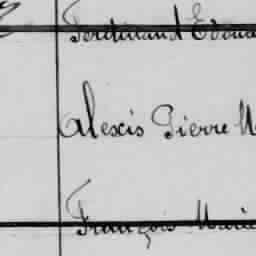 Ferdinand Edoua
Alexis Pierre M
François Marie